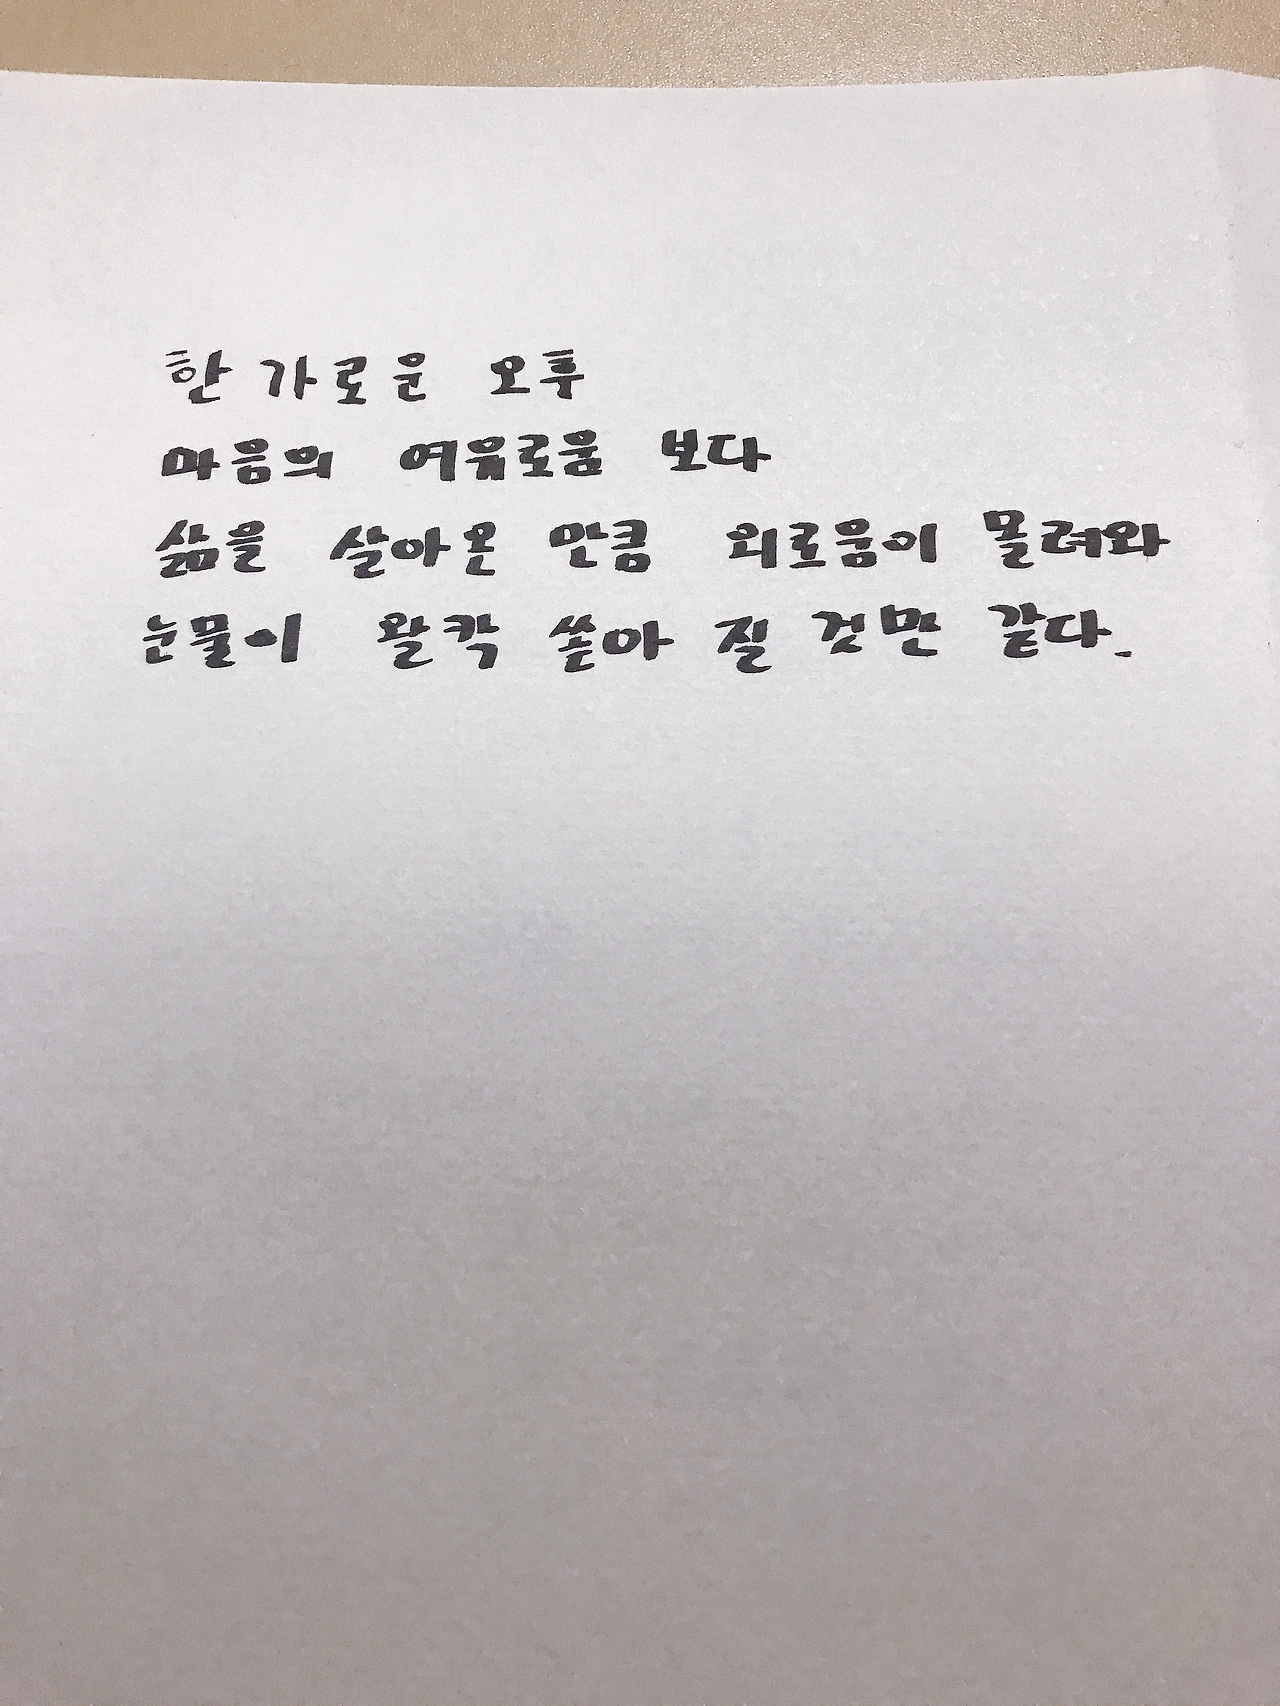 한가로운 오후
마음의 여유로움 보다
삶을 살아온 만큼 외로움이 몰려와
눈물이 왈칵 쏟아 질 것만 같다.